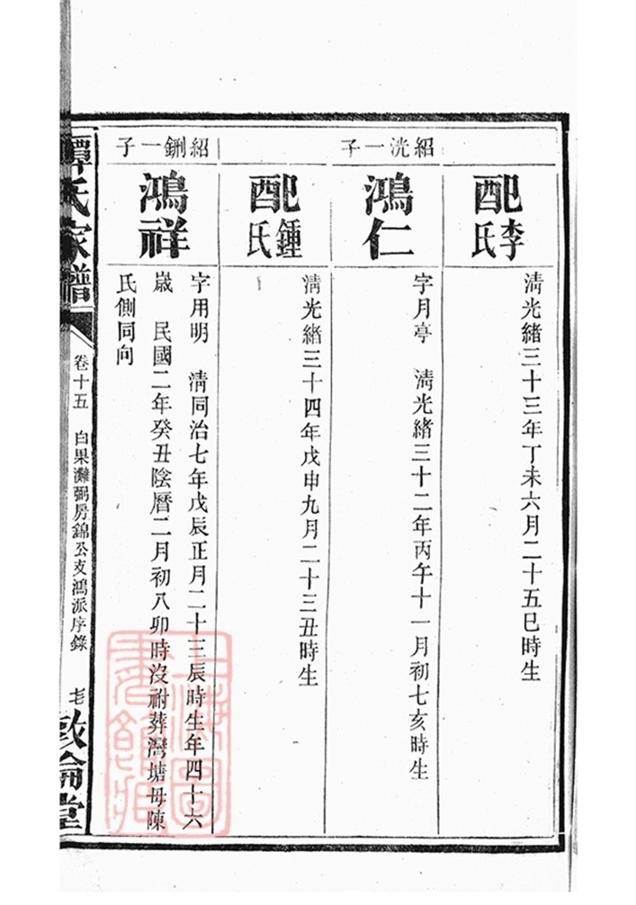 配李氏
清光緒三十三年丁未六月二十五巳時生
紹洸一子
鴻仁
字月亭 清光緒三十二年丙午十一月初七亥時生
配鍾氏
清光緒三十四年戊申九月二十三丑時生
紹鉶一子
鴻祥
字用明 清同治七年戊辰正月二十三辰時生年四十六
歲 民國二年癸丑陰曆二月初八卯時沒祔葬灣塘母陳
氏側同向
譚氏家譜
卷十五 白果灘弼房錦公支鴻派序錄
敦倫堂